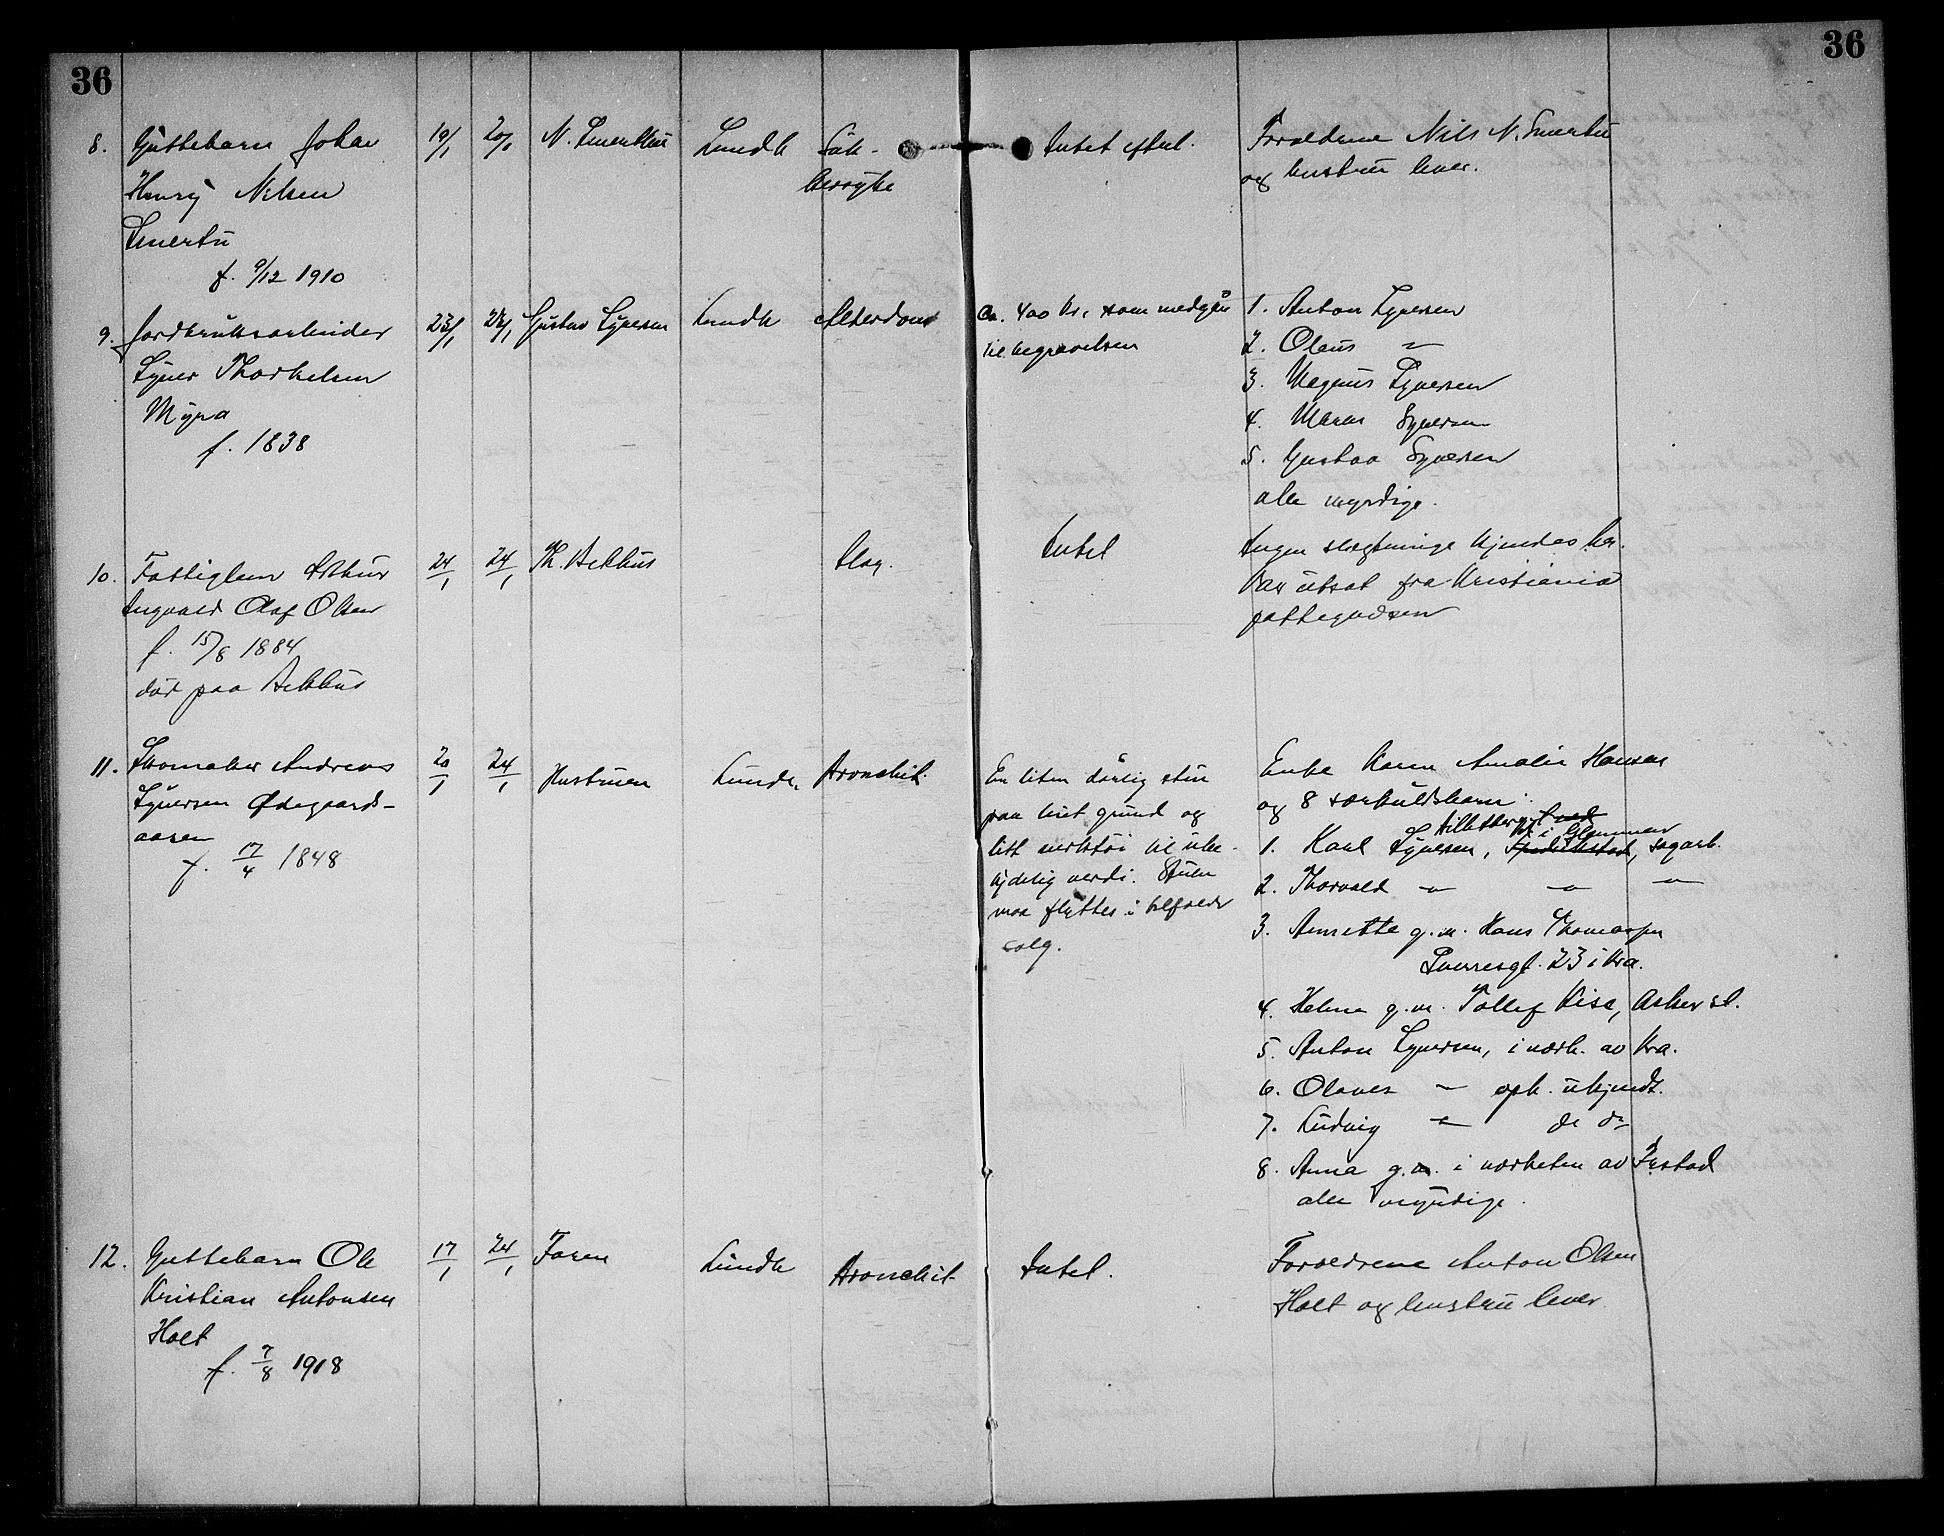 36
36
8. Guttebarn Johan 19/1 20/1 N. Smertu Lunde Intet efterl. Forældrene Nils N. Smertu
Henry Nilsen og hustru lever.
Smertu
f. 9/12 1910
9. Jordbruksarbeider 23/1 Gustav Syversen Lunde Alderdom Ca. 400 kr. som medgår 1. Anton Syversen
Syver Thorkelsen til begravelsen 2. Olaus —"—
Myra 3. Magnus Syversen
f. 1838 4. Maren Syversen
5. Gustav Syversen
alle myndige.
10. Fattiglem Arthur 24/1 24/1 Th. Bekkhus Slag. Intet Ingen slægtninge kjendes her.
Ingvald Olaf Olsen Var utsat fra Kristiania
f. 15/8 1884 fattigvæsen
död paa Bekkhus
11. Andreas 20/1 24/1 Hustruen Lunde Bronchit. En liten dårlig stue Enke Karen Amalie Hansen
Syversen Ødegaards- paa leiet grund og og 8 særkuldsbarn:
aasen litt verktöi til ube- 1. Karl Syversen, i Glemmen, sagarb.
f. 17/4 1848 tydelig verdi. Stuen 2. Thorvald —"— —"— —"—
maa flyttes i tilfælde 3. Annette g.m. Hans Thomassen
salg. Sverresgt. 23 i Kra.
4. Helene g.m. Tollef Vise, Asker st.
5. Anton Syversen, i nærh. av Kra.
6. Olaves —"— oph. ukjendt.
7. Ludvig —"— do do
8. Anna g.m. i nærheten av Frstad
alle myndige.
12. Guttebarn Ole 17/1 24/1 Faren Lunde Bronchit Intet. Forældrene Anton Olsen
Kristian Antonsen Holt og hustru lever.
Holt
f. 7/8 1918